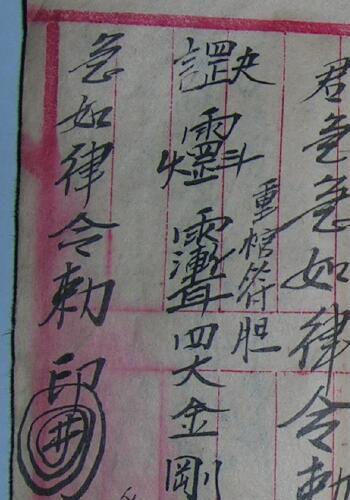 君急急如律令勅
重棺符胆
四大金剛
急如律令勅 印
井